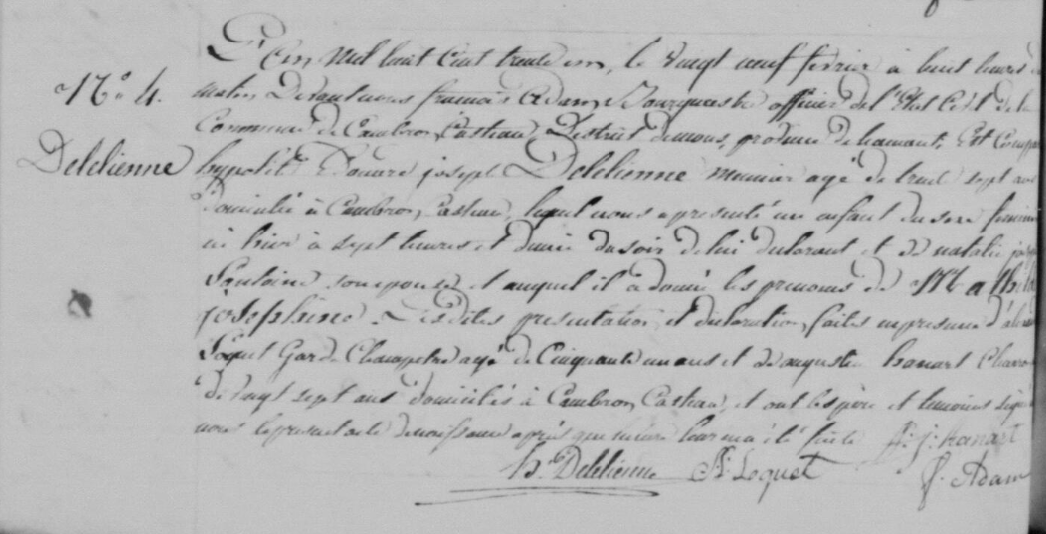 L'an mil huit cent trente un, le vingt neuf fevrier à huit heures
N.° 4.
matin Devant nous francois Adam Bourguemestre officier de l'Etat Civil de la
Commune de Cambron Casteau, District de mons, province de hainaut, Est Comparu
Delelienne
hypolite Edouard joseph Delelienne meunier agé de trente sept ans
domicilié à Cambron Casteau, lequel nous a presenté un enfant du sexe feminin
né hier à sept heures et demie du soir de lui declarant et de natalie
Fontaine son epouse et auquel il a donné les prenoms de Mathilde
josephine. Les dites presentation et declaration faites en presence d'
Loquet Garde Champetre agé de Cinquante un ans et de auguste honart
de vingt sept ans domiciliés à Cambron Casteau, et ont les père et temoins signé
nous le present acte de naissance après que lecture leur en a été faite A: j: Honart
h.te Delelienne A: Loquet f. Adam